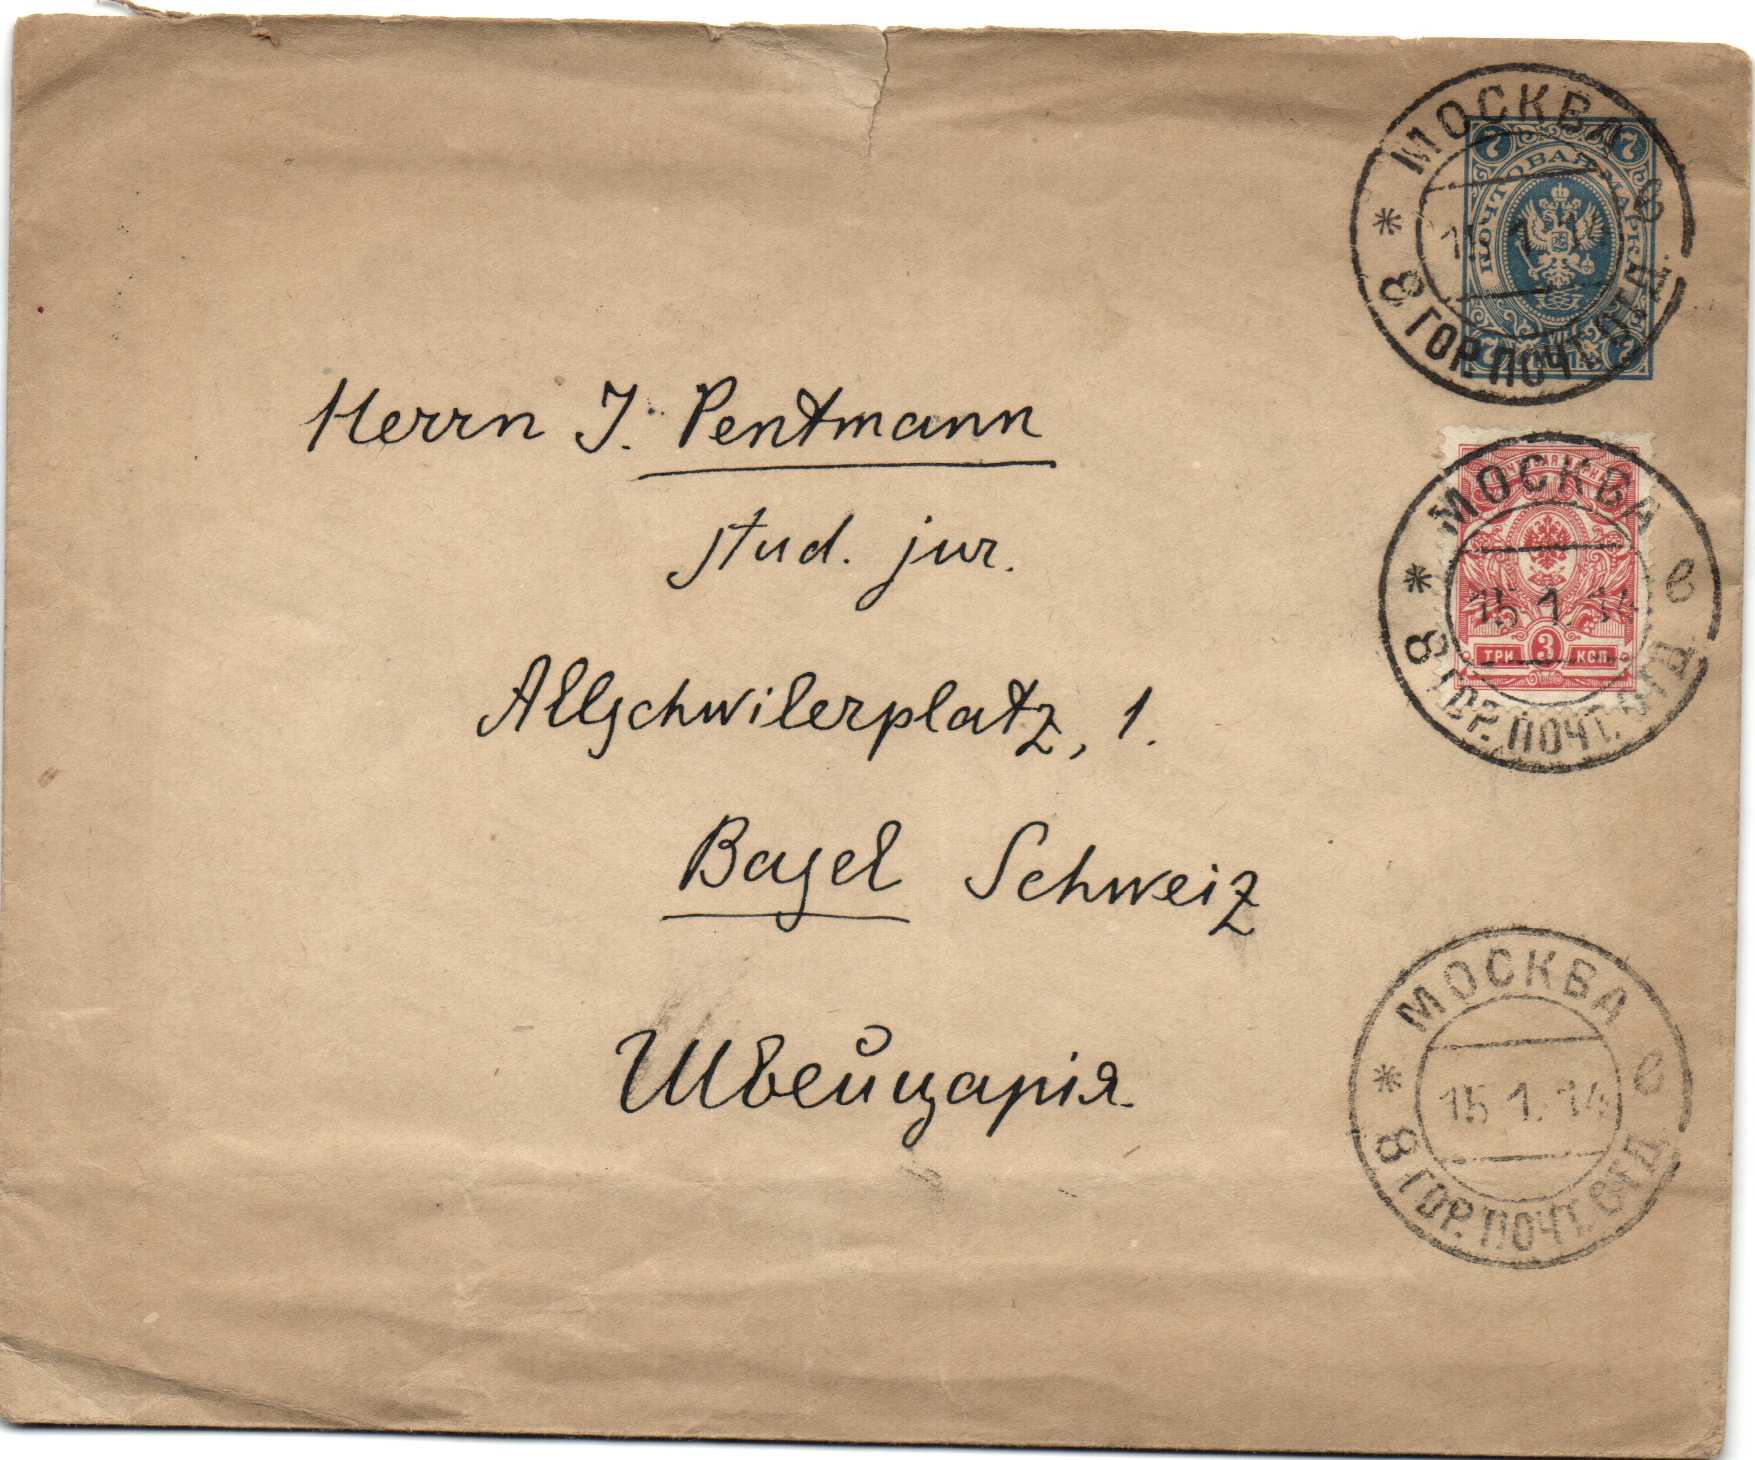 МОСКВА
8 ГОР. ПОЧТ. ОТД.
7 7
ПОЧТОВАЯ МАРКА
7 7
Herrn J. Pentmann
МОСКВА
15 1. 14
ТРИ 3 КОП
в
8 ГОР. ПОЧТ. ОТД.
stud. jur.
Allschwilerplatz, 1.
Basel Schweiz
Швейцарія
МОСКВА
15 1. 14
е
8 ГОР. ПОЧТ. ОТД.